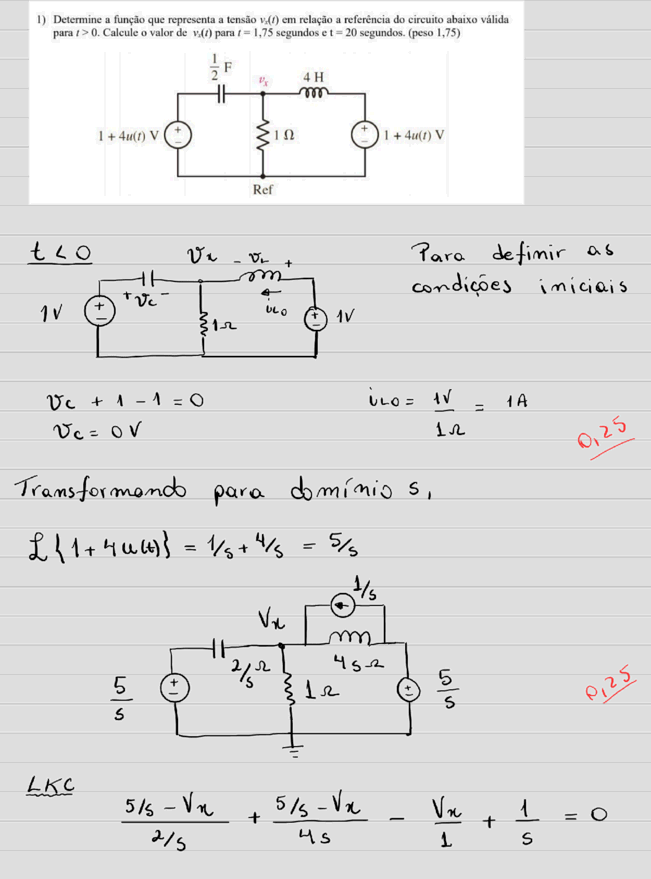 1) Determine a função que representa a tensão vₓ(t) em relação a referência do circuito abaixo válida
para t > 0. Calcule o valor de vₓ(t) para t = 1,75 segundos e t = 20 segundos. (peso 1,75)
1/2 F
vₓ
4 H
1 + 4u(t) V
1 Ω
1 + 4u(t) V
Ref
t < 0
Vx
- VL +
Para definir as
condições iniciais
1V
+ Vc -
1Ω
iLo
1V
Vc + 1 - 1 = 0
Vc = 0 V
iLo = 1V/1Ω = 1A
0,25
Transformando para domínio s,
ℒ{1+4u(t)} = 1/s + 4/s = 5/s
1/s
Vx
2/s Ω
4s Ω
5/s
1Ω
5/s
0,25
LKC
(5/s - Vx)/(2/s) + (5/s - Vx)/(4s) - Vx/1 + 1/s = 0